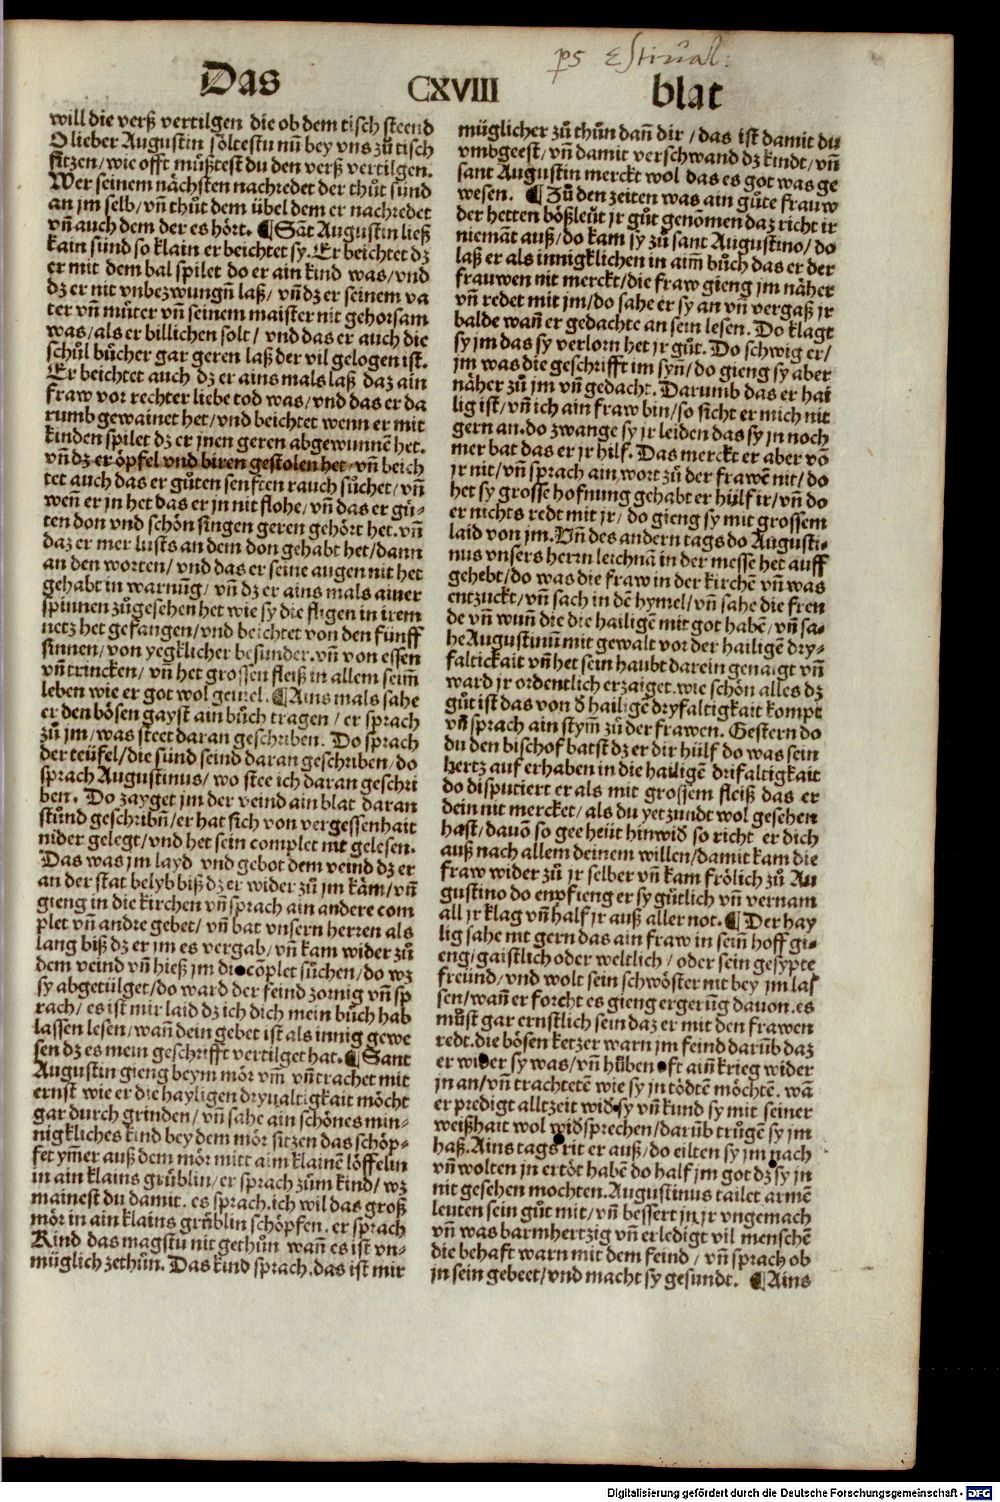 ps Estiual:
Das CXVIII blat
will die verß vertilgen die ob dem tisch steend
O lieber Augustin soltestu nū bey vns zů tisch
sitzen/wie offt müßtest du den verß vertilgen.
Wer seinem nächsten nachredet der thůt sünd
an jm selb/vñ thůt dem übel dem er nachredet
vñ auch dem der es hört. ¶ Sāt Augustin ließ
kain sünd so klain er beichtet sy. Er beichtet dz
er mit dem bal spilet do er ain kind was/vnd
dz er nit vnbezwungñ laß/ vñ dz er seinem va
ter vñ můter vñ seinem maister nit gehorsam
was/als er billichen solt/ vnd das er auch die
schůl bücher gar geren laß der vil gelogen ist.
Er beichtet auch dz er ains mals laß daz ain
fraw vor rechter liebe tod was/vnd das er da
rumb gewainet het/vnd beichtet wenn er mit
kinden spilet dz er jnen geren abgewunnē het.
vñ dz er öpfel vnd biren gestolen het vñ beich
tet auch das er gůten senften rauch sůchet/vñ
weñ er in het das er jn nit flohe/vñ das er gů-
ten don vnd schön singen geren gehört het. vñ
daz er mer lusts an dem don gehabt het/dann
an den worten/ vnd das er seine augen nit het
gehabt in warnūg/ vñ dz er ains mals ainer
spinnen zůgesehen het wie sy die fligen in irem
netz het gefangen/vnd beichtet von den fünff
sinnen/von yegklicher besunder. vñ von essen
vñ trincken/ vñ het grossen fleiß in allem seim̄
leben wie er got wol geuiel. ¶ Ains mals sahe
er den bösen gayst ain bůch tragen/ er sprach
zů jm/was steet daran geschriben. Do sprach
der teüfel/die sünd seind daran geschriben/do
sprach Augustinus/ wo stee ich daran geschri
ben. Do zayget jm der veind ain blat daran
stůnd geschribñ/er hat sich von vergessenhait
nider gelegt/vnd het sein complet nit gelesen.
Das was jm layd vnd gebot dem veind dz er
an der stat belyb biß dz er wider zů jm käm/vñ
gieng in die kirchen vñ sprach ain andere com
plet vñ andre gebet/ vñ bat vnsern herren als
lang biß dz er im es vergab/vñ kam wider zů
dem veind vñ hieß jm die cōplet sůchen/do wz
sy abgetülget/do ward der feind zornig vñ sp
rach/ es ist mir laid dz ich dich mein bůch hab
lassen lesen/wañ dein gebet ist als innig gewe
sen dz es mein geschrifft vertilget hat. ¶ Sant
Augustin gieng beym mör vm̄ vñ trachet mit
ernst wie er die hayligen dryualtigkait möcht
gar durch grinden/ vñ sahe ain schönes min-
nigkliches kind bey dem mör sitzen das schöp-
fet ym̄er auß dem mör mitt aim klainē löffelin
in ain klains grüblin/er sprach zům kind/ wz
mainest du damit. es sprach. ich wil das groß
mör in ain klains grüblin schöpfen. er sprach
Kind das magstu nit gethůn wañ es ist vn-
müglich zethůn. Das kind sprach. das ist mir
müglicher zů thůn dañ dir/ das ist damit du
vmbgeest/vñ damit verschwand dz kindt/vñ
sant Augustin merckt wol das es got was ge
wesen. ¶ Zů den zeiten was ain gůte frauw
der hetten bößleüt jr gůt genomen daz richt ir
niemāt auß/do kam sy zů sant Augustino/do
laß er als innigklichen in aim̄ bůch das er der
frauwen nit merckt/die fraw gieng jm näher
vñ redet mit jm/do sahe er sy an vñ vergaß jr
balde wañ er gedachte an sein lesen. Do klagt
sy jm das sy verlorn het jr gůt. Do schwig er/
jm was die geschrifft im syñ/do gieng sy aber
näher zů jm vñ gedacht. Darumb das er hai
lig ist/vñ ich ain fraw bin/so sicht er mich nit
gern an. do zwange sy jr leiden das sy jn noch
mer bat das er jr hilf. Das merckt er aber vō
jr nit/vñ sprach ain wort zů der frawē nit/do
het sy grosse hofnung gehabt er hülf ir/vñ do
er nichts redt mit jr/ do gieng sy mit grossem
laid von jm. Vñ des andern tags do Augusti-
nus vnsers herrn leichnā in der messe het auff
gehebt/do was die fraw in der kirchē vñ was
entzuckt/vñ sach in dē hymel/vñ sahe die freu
de vñ wuñ die die hailigē mit got habē/vñ sa-
he Augustinū mit gewalt vor der hailigē dry-
faltickait vñ het sein haubt darein genaigt vñ
ward jr ordentlich erzaiget. wie schön alles dz
gůt ist das von d̕ hailigē dryfaltigkait kompt
vñ sprach ain stym̄ zů der frawen. Gestern do
du den bischof batst dz er dir hülf do was sein
hertz auf erhaben in die hailigē drifaltigkait
do disputiert er als mit grossem fleiß das er
dein nit mercket/als du yetzundt wol gesehen
hast/dauō so gee heüt hinwid̕ so richt er dich
auß nach allem deinem willen/damit kam die
fraw wider zů jr selber vñ kam frölich zů Au
gustino do enpfieng er sy gůtlich vñ vernam
all jr klag vñ half jr auß aller not. ¶ Der hay
lig sahe nit gern das ain fraw in seim̄ hoff gi-
eng/gaistlich oder weltlich/oder sein gesypte
freünd/vnd wolt sein schwöster nit bey im las
sen/wañ er forcht es gieng ergerūg dauon. es
můst gar ernstlich sein daz er mit den frawen
redt. die bösen ketzer warn jm feind darūb daz
er wider sy was/vñ hüben oft aiñ krieg wider
jn an/vñ trachtetē wie sy jn tödtē möchtē. wā
er predigt alltzeit wid̕ sy vñ kund sy mit seiner
weißhait wol wid̕sprechen/darūb trůgē sy jm
haß. Ains tags rit er auß/do eilten sy jm nach
vñ wolten jn ertöt habē do half jm got dz sy jn
nit gesehen mochten. Augustinus tailet armē
leuten sein gůt mit/vñ bessert jn jr vngemach
vñ was barmhertzig vñ erledigt vil menschē
die behaft warn mit dem feind/ vñ sprach ob
jn sein gebeet/vnd macht sy gesundt. ¶ Ains
Digitalisierung gefördert durch die Deutsche Forschungsgemeinschaft - DFG